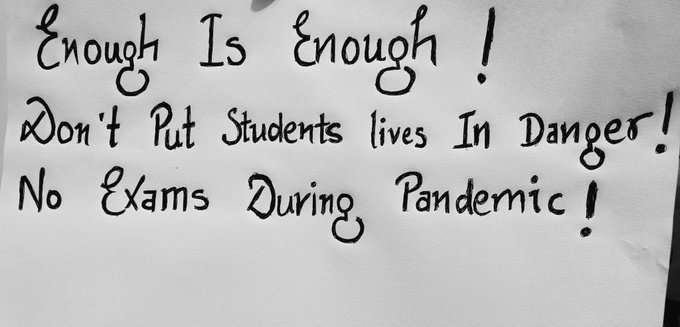 Enough Is Enough !
Don't Put Students lives In Danger!
No Exams During Pandemic !